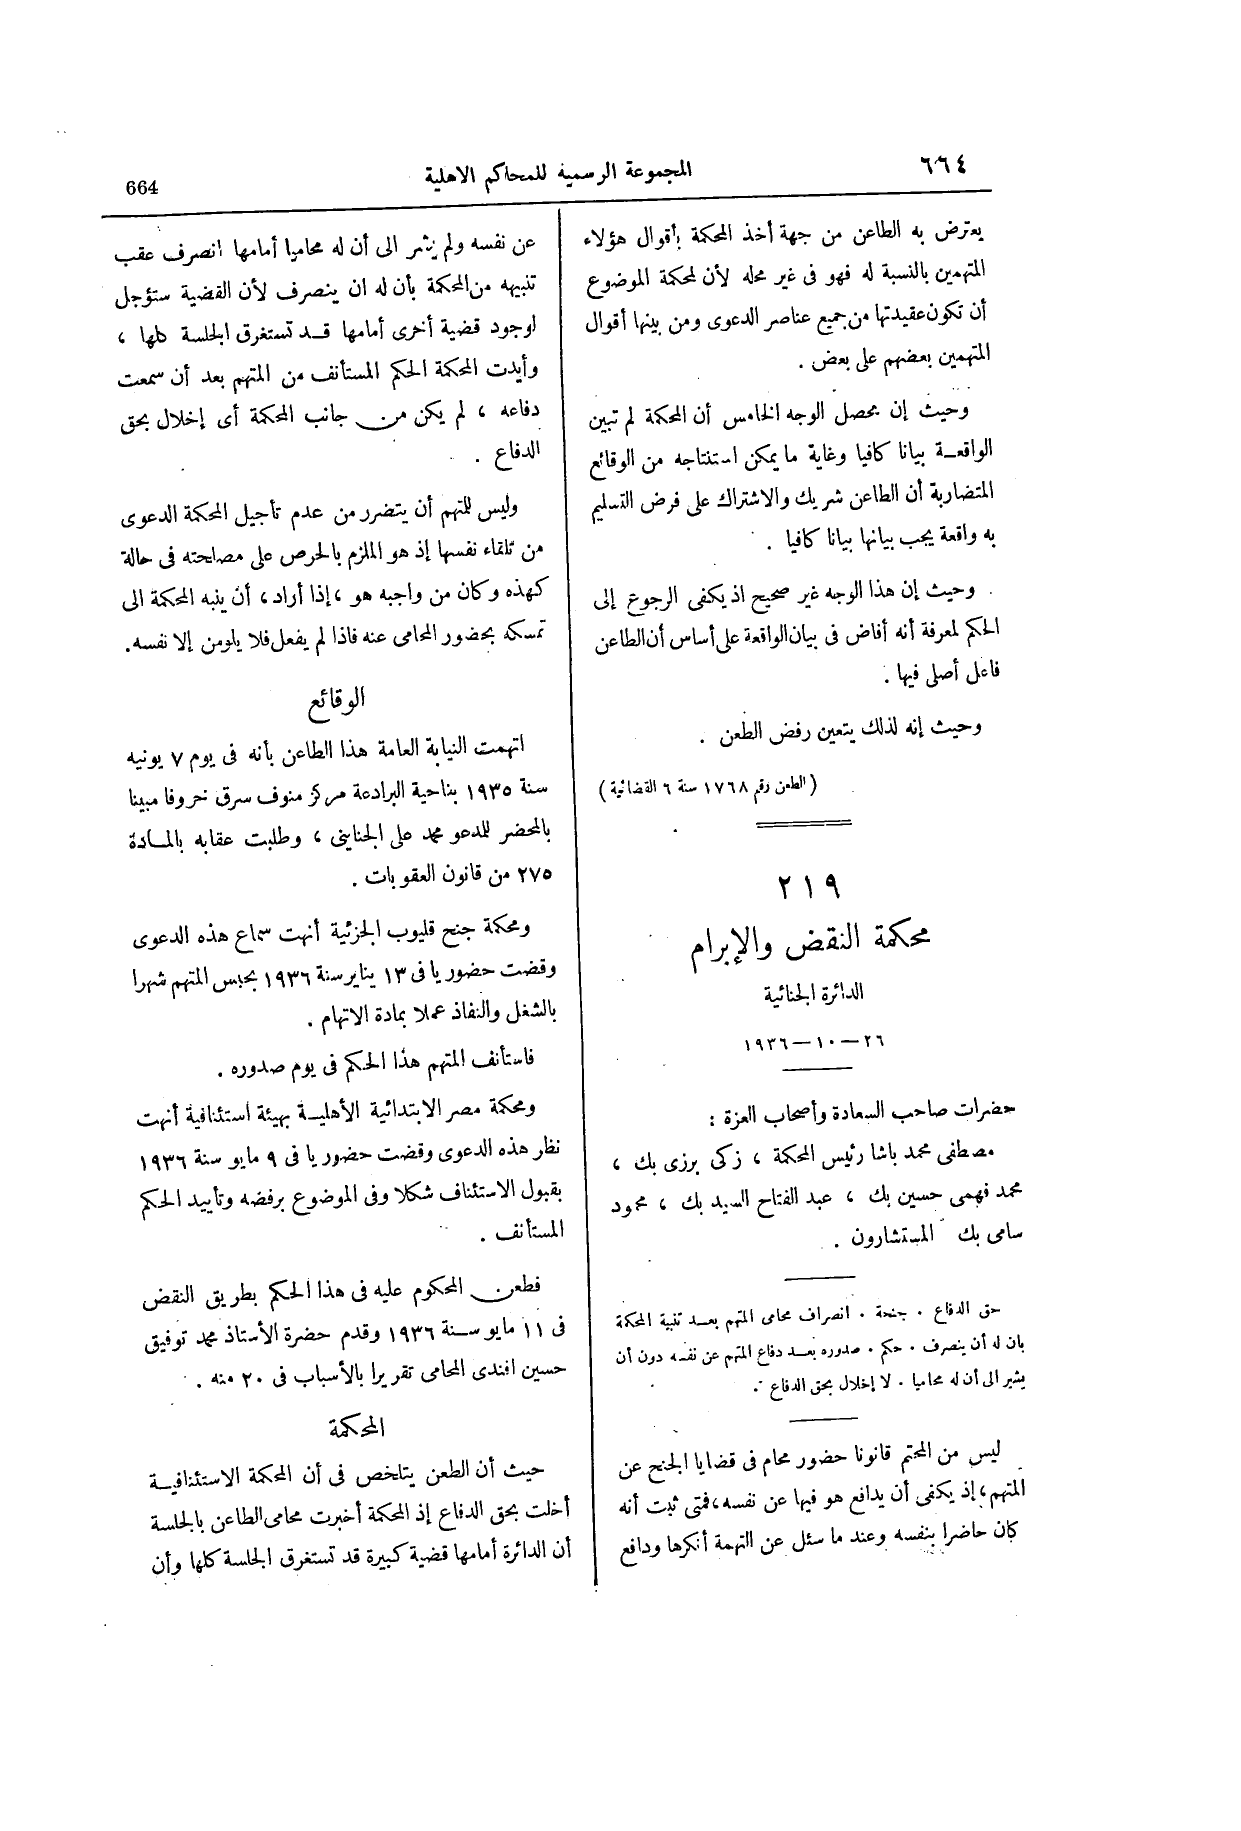 ٦٦٤
المجموعة الرسمية للمحاكم الاهلية
664
يعترض به الطاعن من جهة أخذ المحكمة بأقوال هؤلاء
المتهمين بالنسبة له فهو فى غير محله لأن لمحكمة الموضوع
أن تكون عقيدتها من جميع عناصر الدعوى ومن بينها أقوال
المتهمين بعضهم على بعض .
وحيث إن محصل الوجه الخامس أن المحكمة لم تبين
الواقعة بيانا كافيا وغاية ما يمكن استنتاجه من الوقائع
المتضاربة أن الطاعن شريك والاشتراك على فرض التسليم
به واقعة يجب بيانها بيانا كافيا .
وحيث إن هذا الوجه غير صحيح اذ يكفى الرجوع إلى
الحكم لمعرفة أنه أفاض فى بيان الواقعة على أساس أن الطاعن
فاعل أصلى فيها .
وحيث إنه لذلك يتعين رفض الطعن .
(الطعن رقم ١٧٦٨ سنة ٦ القضائية)
٢١٩
محكمة النقض والإبرام
الدائرة الجنائية
٢٦ — ١٠ — ١٩٣٦
حضرات صاحب السعادة وأصحاب العزة :
مصطفى محمد باشا رئيس المحكمة ، زكى برزى بك ،
محمد فهمى حسين بك ، عبد الفتاح السيد بك ، محمود
سامى بك المستشارون .
حق الدفاع . جنحة . انصراف محامى المتهم بعد تنبية المحكمة
بان له أن ينصرف . حكم . صدوره بعد دفاع المتهم عن نفسه دون أن
يشير الى أن له محاميا . لا إخلال بحق الدفاع .
ليس من المحتم قانونا حضور محام فى قضايا الجنح عن
المتهم، إذ يكفى أن يدافع هو فيها عن نفسه، فمتى ثبت أنه
كان حاضرا بنفسه وعند ما سئل عن التهمة أنكرها ودافع
عن نفسه ولم يشر الى أن له محاميا أمامها انصرف عقب
تنبيه من المحكمة بأن له ان ينصرف لأن القضية ستؤجل
لوجود قضية أخرى أمامها قد تستغرق الجلسة كلها ،
وأيدت المحكمة الحكم المستأنف من المتهم بعد أن سمعت
دفاعه ، لم يكن من جانب المحكمة أى إخلال بحق
الدفاع .
وليس للمتهم أن يتضرر من عدم تأجيل المحكمة الدعوى
من تلقاء نفسها إذ هو الملزم بالحرص على مصلحته فى حالة
كهذه وكان من واجبه هو ، إذا أراد ، أن ينبه المحكمة الى
تمسكه بحضور المحامى عنه فاذا لم يفعل فلا يلومن إلا نفسه.
الوقائع
اتهمت النيابة العامة هذا الطاعن بأنه فى يوم ٧ يونيه
سنة ١٩٣٥ بناحية البرادعة مركز منوف سرق خروفا مبينا
بالمحضر للمدعو محمد على الجناينى ، وطلبت عقابه بالمادة
٢٧٥ من قانون العقوبات .
ومحكمة جنح قليوب الجزئية أنهت سماع هذه الدعوى
وقضت حضوريا فى ١٣ يناير سنة ١٩٣٦ بحبس المتهم شهرا
بالشغل والنفاذ عملا بمادة الاتهام .
فاستأنف المتهم هذا الحكم فى يوم صدوره .
ومحكمة مصر الابتدائية الأهلية بهيئة استئنافية أنهت
نظر هذه الدعوى وقضت حضوريا فى ٩ مايو سنة ١٩٣٦
بقبول الاستئناف شكلا وفى الموضوع برفضه وتأييد الحكم
المستأنف .
فطعن المحكوم عليه فى هذا الحكم بطريق النقض
فى ١١ مايو سنة ١٩٣٦ وقدم حضرة الأستاذ محمد توفيق
حسين افندى المحامى تقريرا بالأسباب فى ٢٠ منه .
المحكمة
حيث أن الطعن يتلخص فى أن المحكمة الاستئنافية
أخلت بحق الدفاع إذ المحكمة أخبرت محامى الطاعن بالجلسة
أن الدائرة أمامها قضية كبيرة قد تستغرق الجلسة كلها وأن